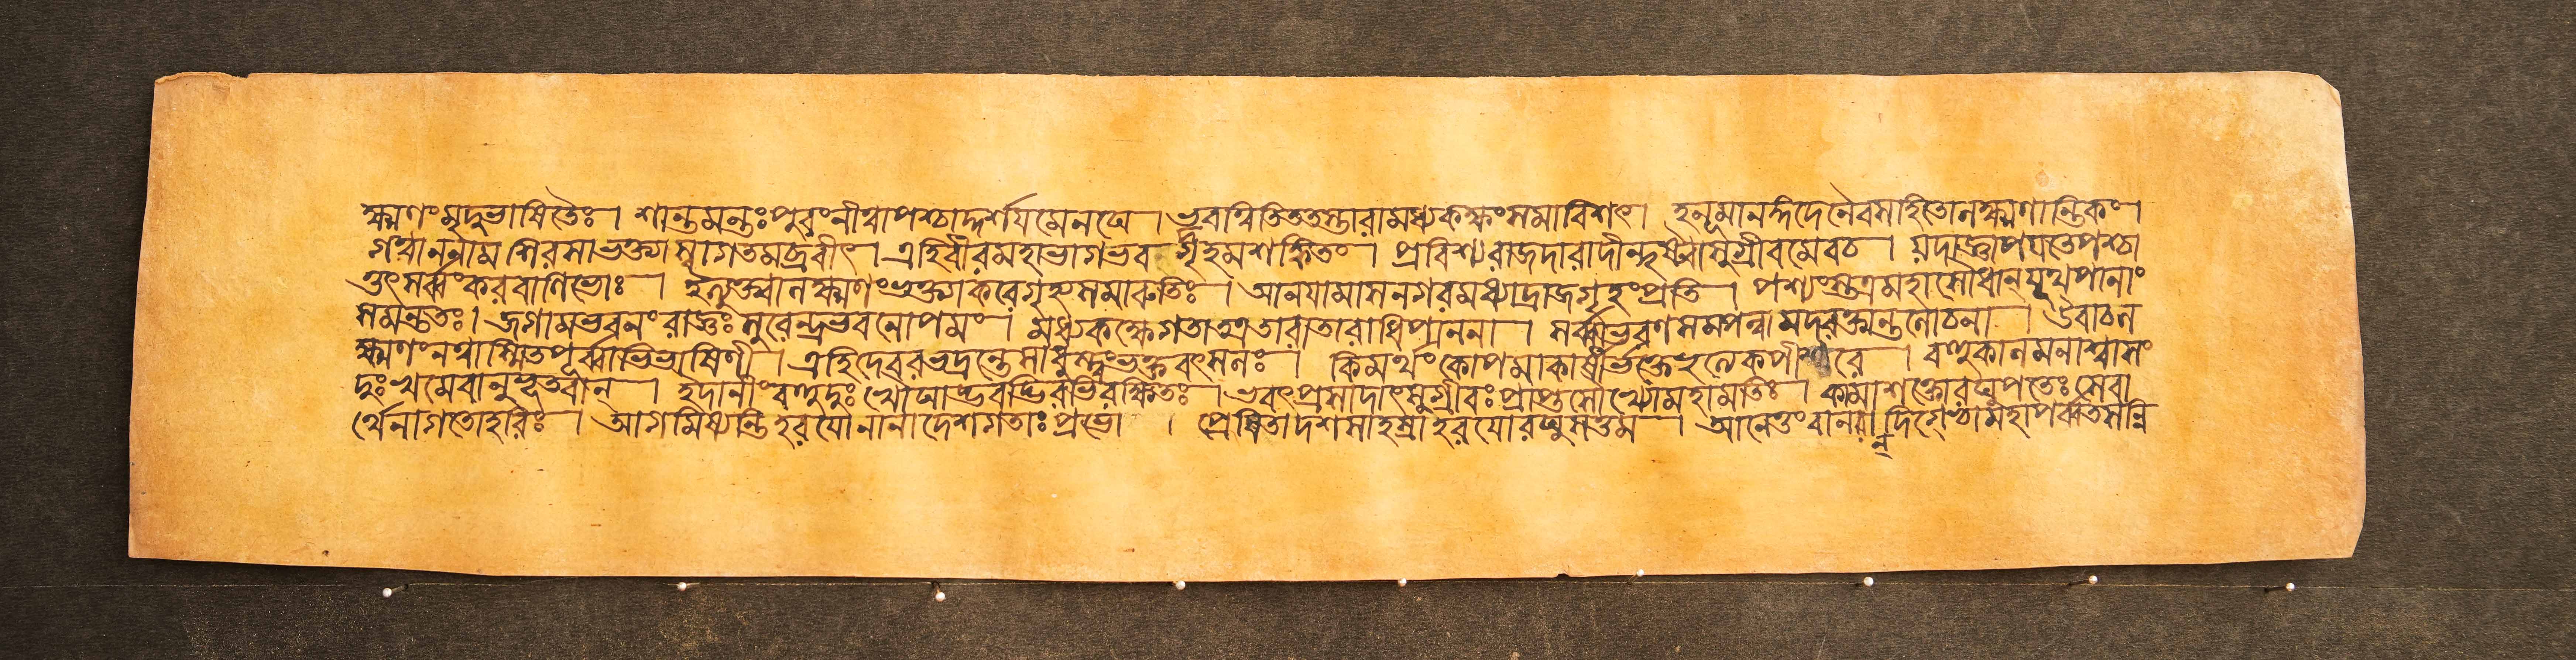 ক্ষ্মণং মৃদুভাষিতৈঃ । শান্তমন্তঃপুরং নীত্বা পশ্চাদ্দর্শয় মেনঘে । ভবত্বিতি ততস্তারা মধ্যকক্ষং সমাবিশৎ । হনূমানঙ্গদেনৈব সহিতো লক্ষ্মণান্তিকং ।
গত্বা ননাম শিরসা ভক্ত্যা স্বাগতমব্রবীৎ । এহি বীর মহাভাগ ভবদ্গৃহমশঙ্কিতং । প্রবিশ্য রাজদারাদীন্দৃষ্ট্বা সুগ্রীবমেব চ । যদাজ্ঞাপয়সে পশ্চা
ত্তৎ সর্ব্বং করবাণি ভোঃ । ইত্যুক্ত্বা লক্ষ্মণং ভক্ত্যা করে গৃহ্য স মারুতিঃ । আনয়ামাস নগরমধ্যাদ্রাজগৃহং প্রতি । পশ্যংস্তত্র মহাসৌধান্ যূথপানাং
সমন্ততঃ । জগাম ভবনং রাজ্ঞঃ সুরেন্দ্রভবনোপমং । মধ্যকক্ষে গতা তত্র তারা তারাধিপাননা । সর্ব্বাভরণসম্পন্না মদরক্তান্তলোচনা । উবাচ ল
ক্ষ্মণং নত্বা স্মিতপূর্ব্বাভিভাষিণী । এহি দেবর ভদ্রন্তে সাধুস্ত্বং ভক্তবৎসলঃ । কিমর্থং কোপমাকার্ষীর্ভক্তে ভৃত্যে কপীশ্বরে । বহুকালমনাশ্বাসং
দুঃখমেবানুভূতবান্ । ইদানীং বহুদুঃখৌঘাদ্ভবদ্ভিরভিরক্ষিতঃ । ভবৎপ্রসাদাৎ সুগ্রীবঃ প্রাপ্তসৌখ্যো মহামতিঃ । কামাশক্তো রঘুপতেঃ সেবা
র্থেনাগতো হরিঃ । আগমিষ্যন্তি হরয়ো নানাদেশগতাঃ প্রভো । প্রেষিতা দশসাহস্রা হরয়ো রঘুসত্তম । আনেতুং বানরান্ দিগ্ভ্যো মহাপর্ব্বতসন্নি